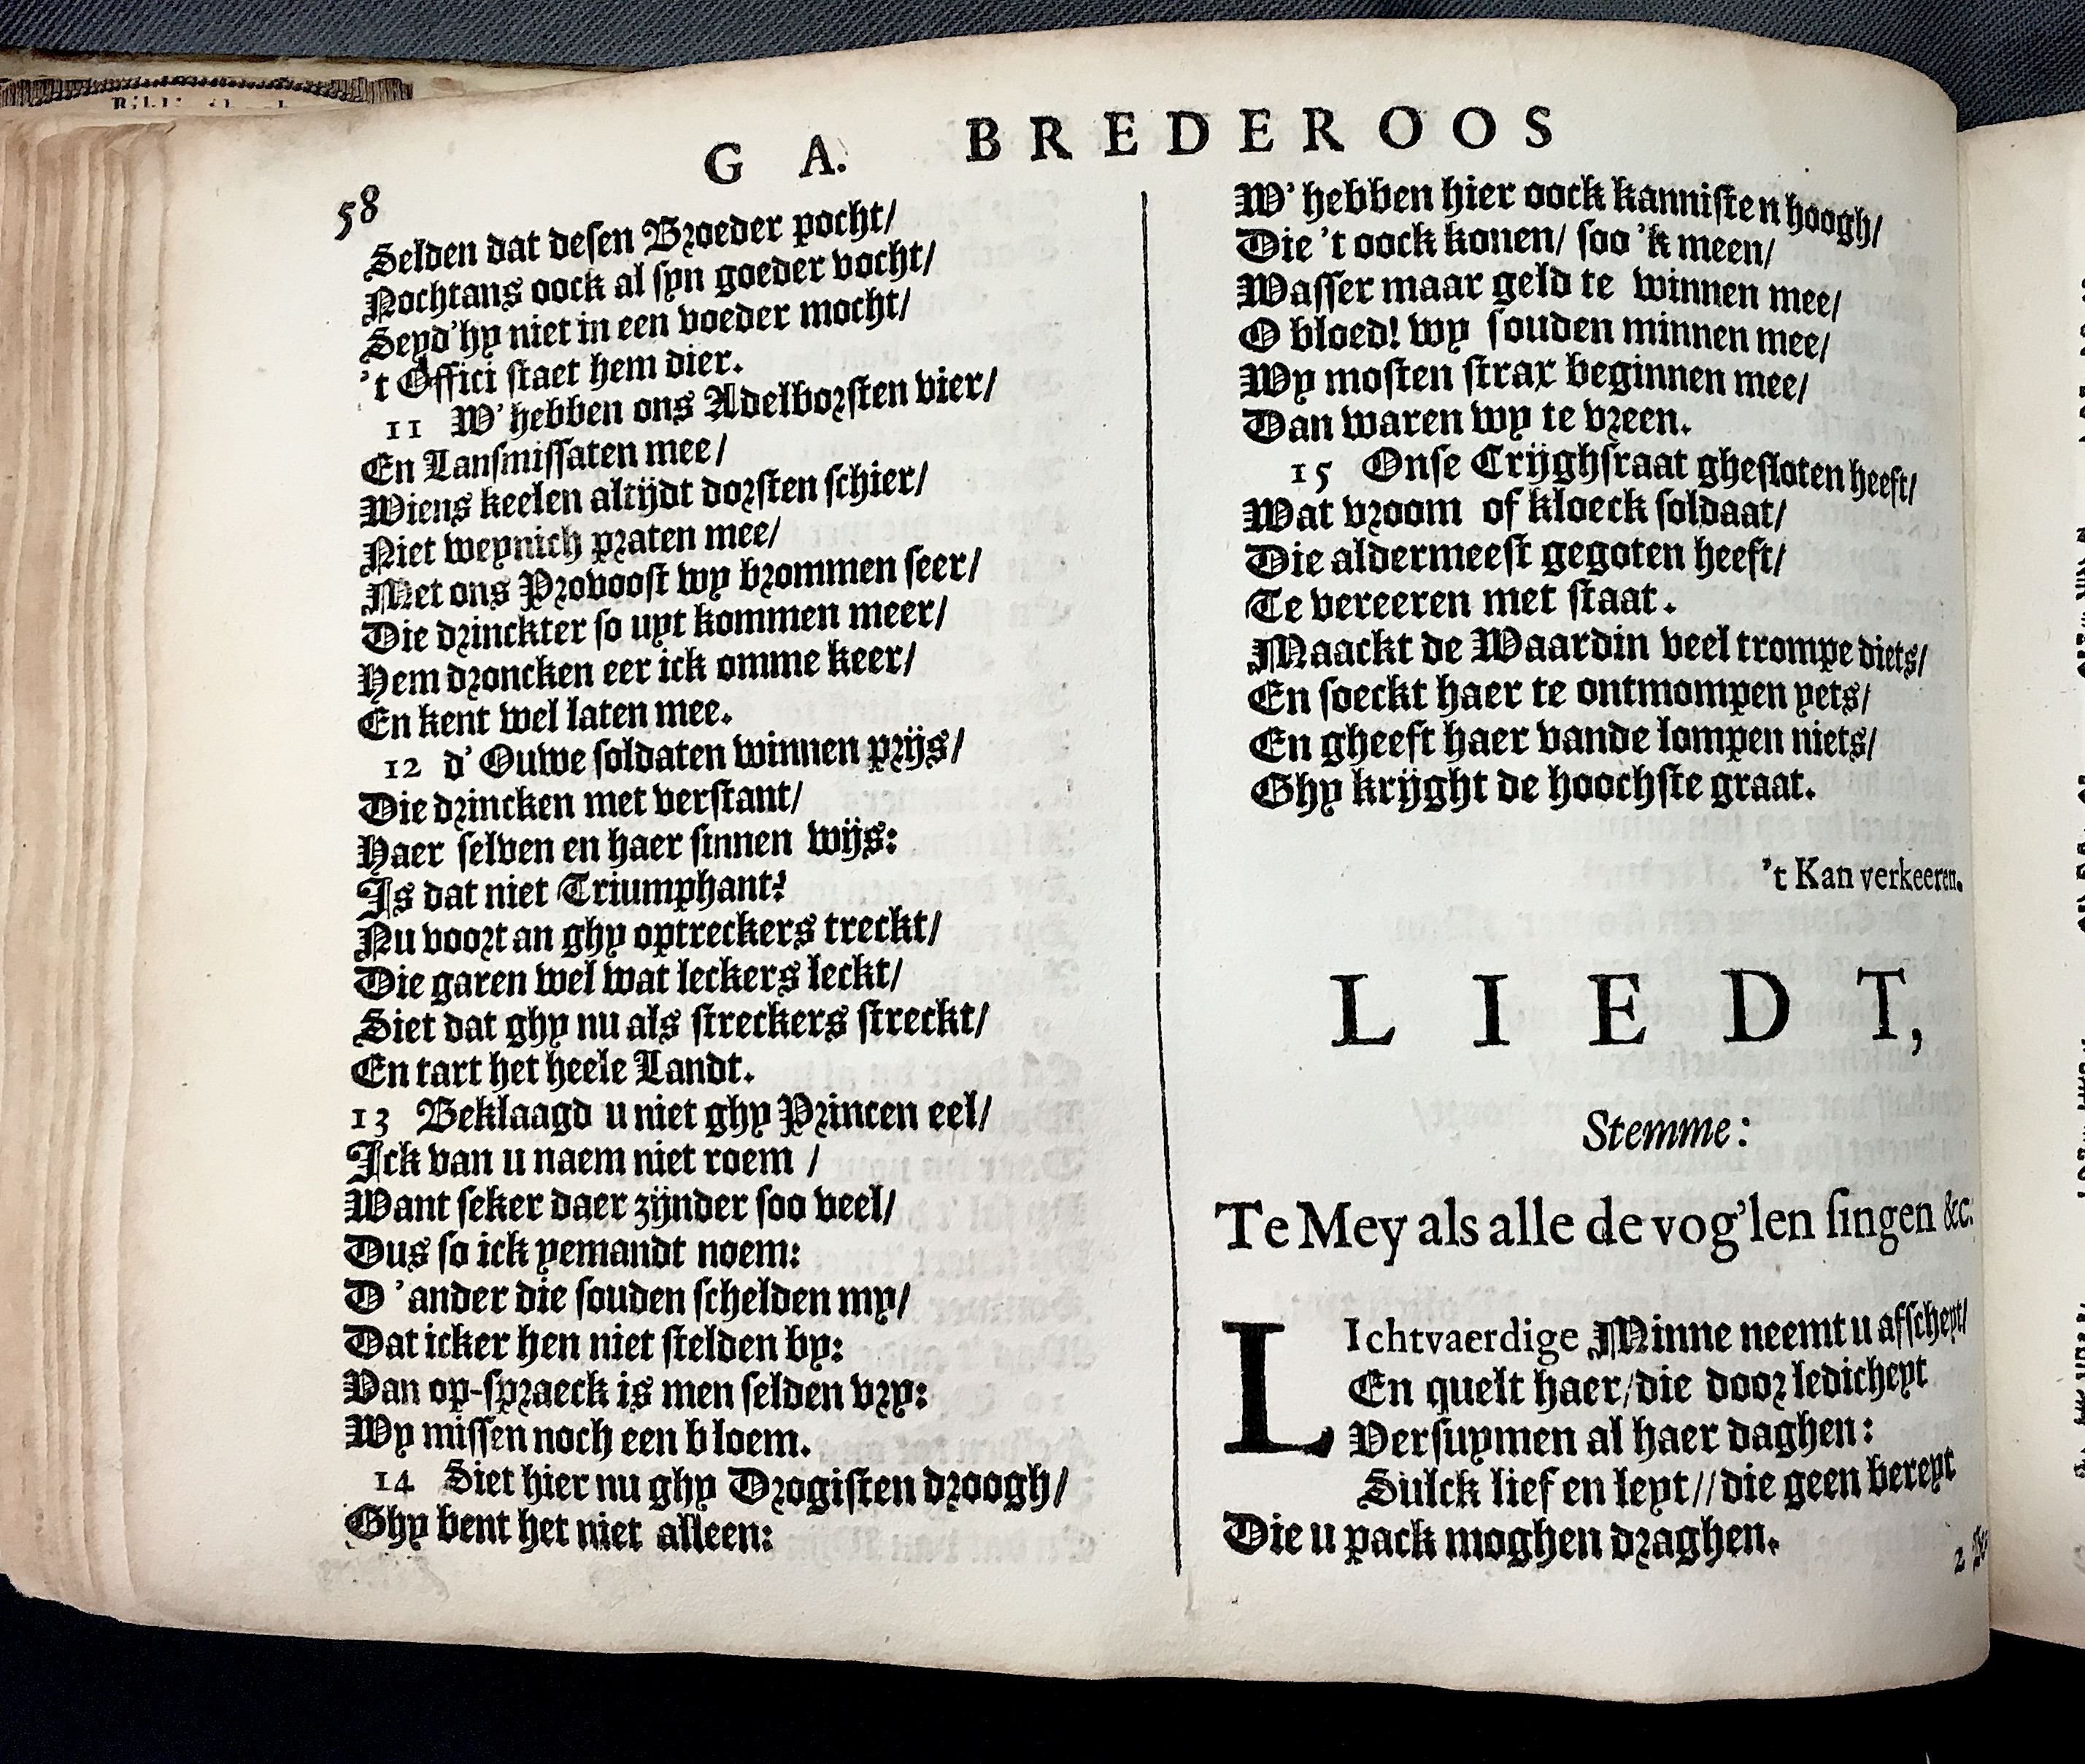 G A. BREDEROOS
58
Selden dat desen Broeder pocht/
Nochtans oock al syn goeder vocht/
Seyd'hy niet in een voeder mocht/
't Offici staet hem dier.
11 W'hebben ons Adelborsten vier/
En Lansmissaten mee/
Wiens keelen altijdt dorsten schier/
Niet weynich praten mee/
Met ons Provoost wy brommen seer/
Die drinckter so uyt kommen meer/
Hem droncken eer ick omme keer/
En kent wel laten mee.
12 d'Ouwe soldaten winnen prijs/
Die drincken met verstant/
Haer selven en haer sinnen wijs:
Is dat niet Triumphant?
Nu voort an ghy optreckers treckt/
Die garen wel wat leckers leckt/
Siet dat ghy nu als streckers streckt/
En tart het heele Landt.
13 Beklaagd u niet ghy Princen eel/
Ick van u naem niet roem /
Want seker daer zijnder soo veel/
Dus so ick yemandt noem:
D'ander die souden schelden my/
Dat icker hen niet stelden by:
Van op-spraeck is men selden vry:
Wy missen noch een bloem.
14 Siet hier nu ghy Drogisten droogh/
Ghy bent het niet alleen:
W'hebben hier oock kannisten hoogh/
Die 't oock konen/ soo 'k meen/
Wasser maar geld te winnen mee/
O bloed! wy souden minnen mee/
Wy mosten strax beginnen mee/
Dan waren wy te vreen.
15 Onse Crijghsraat ghesloten heeft/
Wat vroom of kloeck soldaat/
Die aldermeest gegoten heeft/
Te vereeren met staat.
Maackt de Waardin veel trompe diets/
En soeckt haer te ontmompen yets/
En gheeft haer vande lompen niets/
Ghy krijght de hoochste graat.
't Kan verkeeren.
LIEDT,
Stemme:
Te Mey als alle de vog'len singen &c.
LIchtvaerdige Minne neemt u afscheyt/
En quelt haer/die door ledicheyt
Versuymen al haer daghen:
Sulck lief en leyt//die geen bereyt
Die u pack moghen draghen.
2